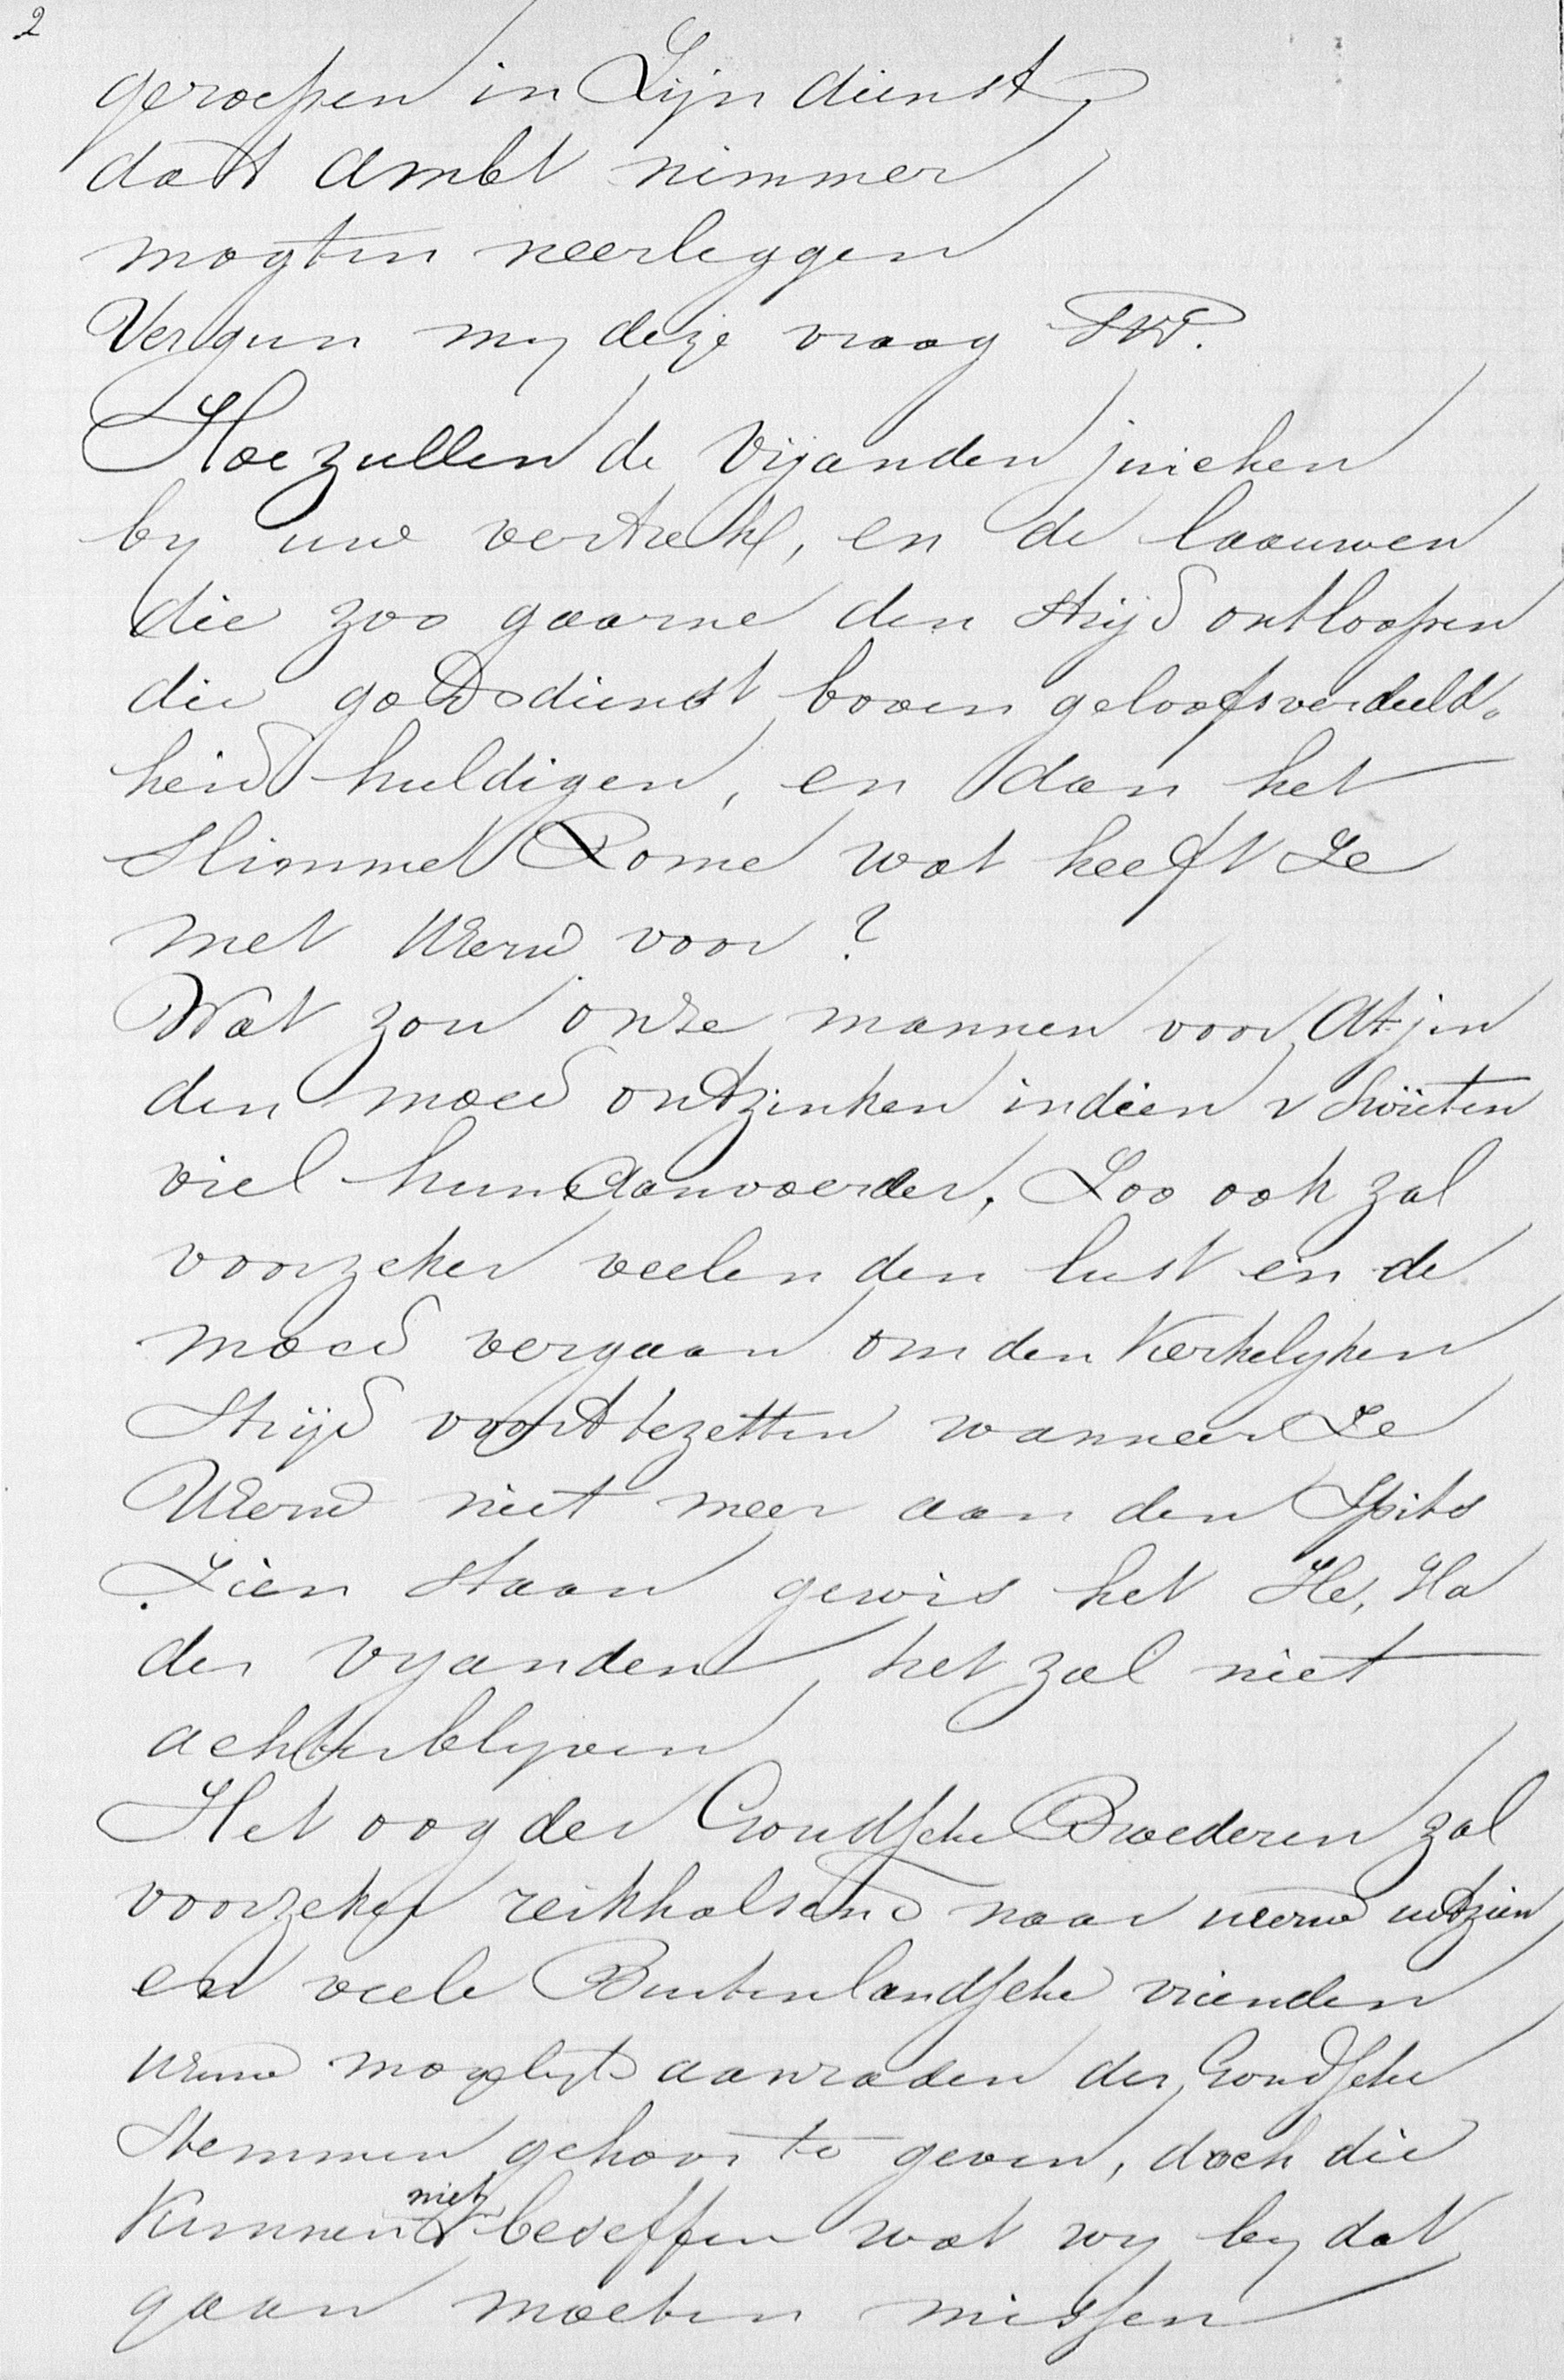 2
geroepen in Zijn dienst,
dat ambt nimmer
mogten neerleggen
Vergun my deze vraag
Hoe zullen de Vijanden juichen
by uw vertrek, en de laauwen
die zoo gaarne den strijd ontloopen
die godsdienst boven geloofsverdeeld„
heid huldigen, en dan het
Slimme Rome wat heeft Ze
met UEerw voor?
Wat zou onze mannen voor Atjin
den moed ontzinken indien v Swieten
viel hun Aanvoerder, Zoo ook zal
voorzeker veelen den lust en de
moed vergaan om den Kerkelyken
Strijd voorttezetten wanneer Ze
UEerw niet meer aan den Spits
Zien staan gewis het He, Ha
der vyanden, het zal niet
achterblyven
Het oog der Goudsche Broederen zal
voorzeker reikhalsend naar ueerw uitzien
en veele Buitenlandsche vrienden
UEerw mogelyk aanraden der Goudsche
Stemmen gehoor te geven, doch die
Kunnen niet beseffen wat wy by dat
gaan moeten missen